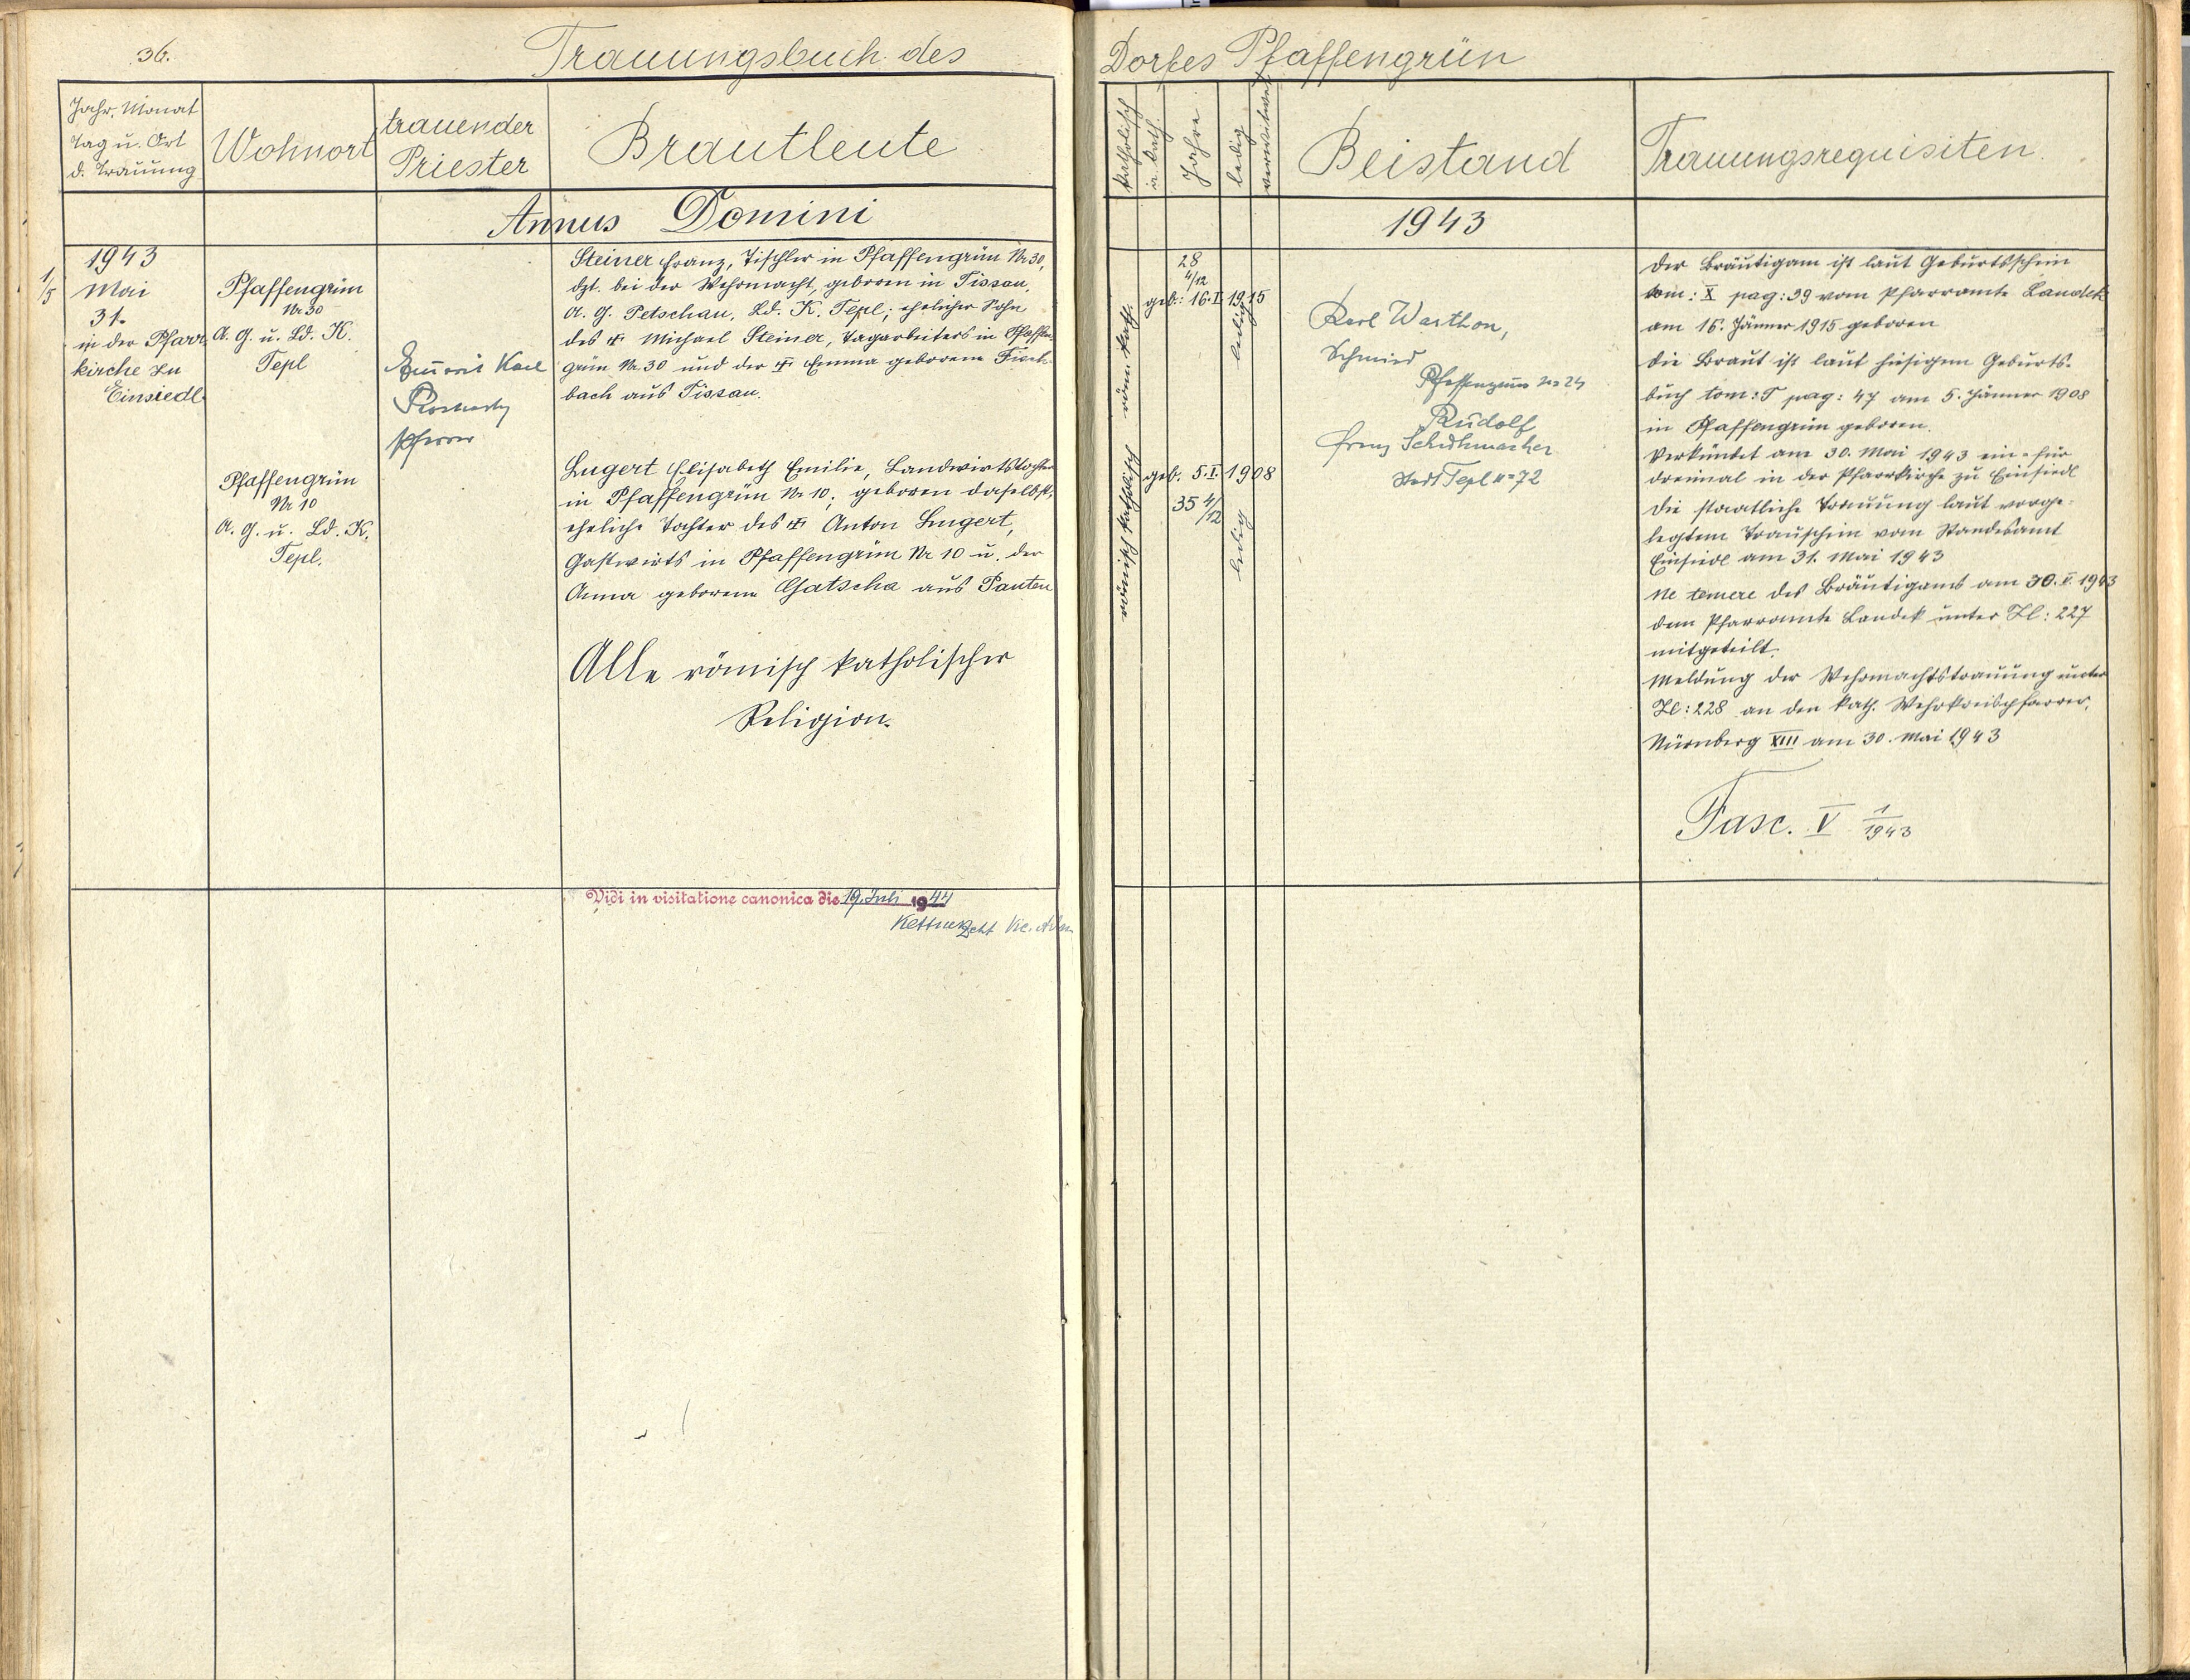 36.
Trauungsbuch des
Dorfes Pfaffengrün
Jahr, Monat
Tag u. Ort
d. Trauung
Wohnort
trauender
Priester
Brautleute
katholisch
Jahre
ledig
verwitwet
Beistand
Trauungsrequisiten.
Annus Domini
1943
1/5
1943
Mai
31.
in der Pfarr
kirche zu
Einsiedl.
Pfaffengrün
Nr 30
A. G. u. Ld. K.
Tepl
Pfaffengrün
Nr 10
A. G. u. Ld. K.
Tepl.
Karl
Pfarrer
Steiner Franz, Tischler in Pfaffengrün Nr 30,
dzt. bei der Wehrmacht, geboren in Tissau,
A. G. Petschau, Ld. K. Tepl; ehelicher Sohn
des Michael Steiner, Tagarbeiters in Pfaffen
grün Nr. 30 und der Emma geborene Fisch
bach aus Tissau.
Lugert Elisabeth Emilie, Landwirtstochter
in Pfaffengrün Nr 10; geboren daselbst,
eheliche Tochter des Anton Lugert,
Gastwirts in Pfaffengrün Nr 10 u. der
Anna geborene Gatscha aus Pauten
Alle römisch katholischer
Religion.
Vidi in visitatione canonica die 19. Juli 1944
röm. kath.
römisch katholisch
28
4/12
geb.: 16. I. 1915
ledig
geb. 5. I. 1908
35 4/12
ledig
Karl Warthon,
Schmied
Pfaffengrün No 24
Rudolf
Franz Schuhmacher
Stadt Tepl No 72
Der Bräutigam ist laut Geburtsschein
tom: X pag: 39 vom Pfarramte Landek
am 16. Jänner 1915 geboren
Die Braut ist laut hiesigem Geburts-
buch tom: T pag: 47 am 5. Jänner 1908
in Pfaffengrün geboren.
Verkündet am 30. Mai 1943 ein- für
dreimal in der Pfarrkirche zu Einsiedl
Die staatliche Trauung laut vorge-
legtem Trauschein vom Standesamt
Einsiedl am 31. Mai 1943
Ne temere des Bräutigams am 30. V. 1943
dem Pfarramte Landek unter Zl: 227
mitgeteilt.
Meldung der Wehrmachtstrauung unter
Zl: 228 an den kath. Wehrkreispfarrer,
Nürnberg XIII am 30. Mai 1943
Fasc. V 1/1943